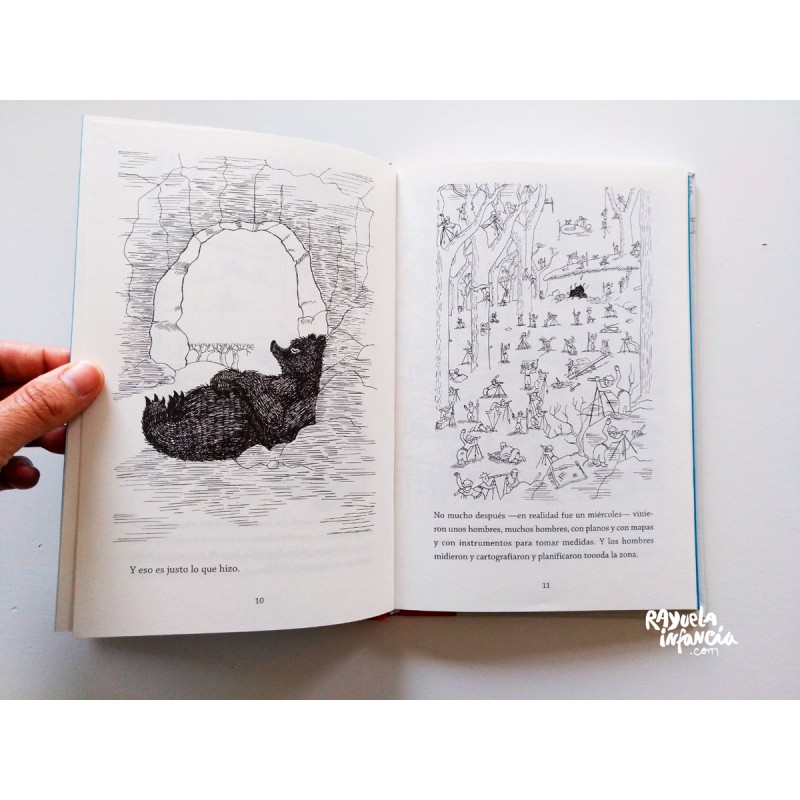 Y eso es justo lo que hizo.
10
No mucho después —en realidad fue un miércoles— vinie-
ron unos hombres, muchos hombres, con planos y con mapas
y con instrumentos para tomar medidas. Y los hombres
midieron y cartografiaron y planificaron toooda la zona.
11
RAyuela
infancia
.com